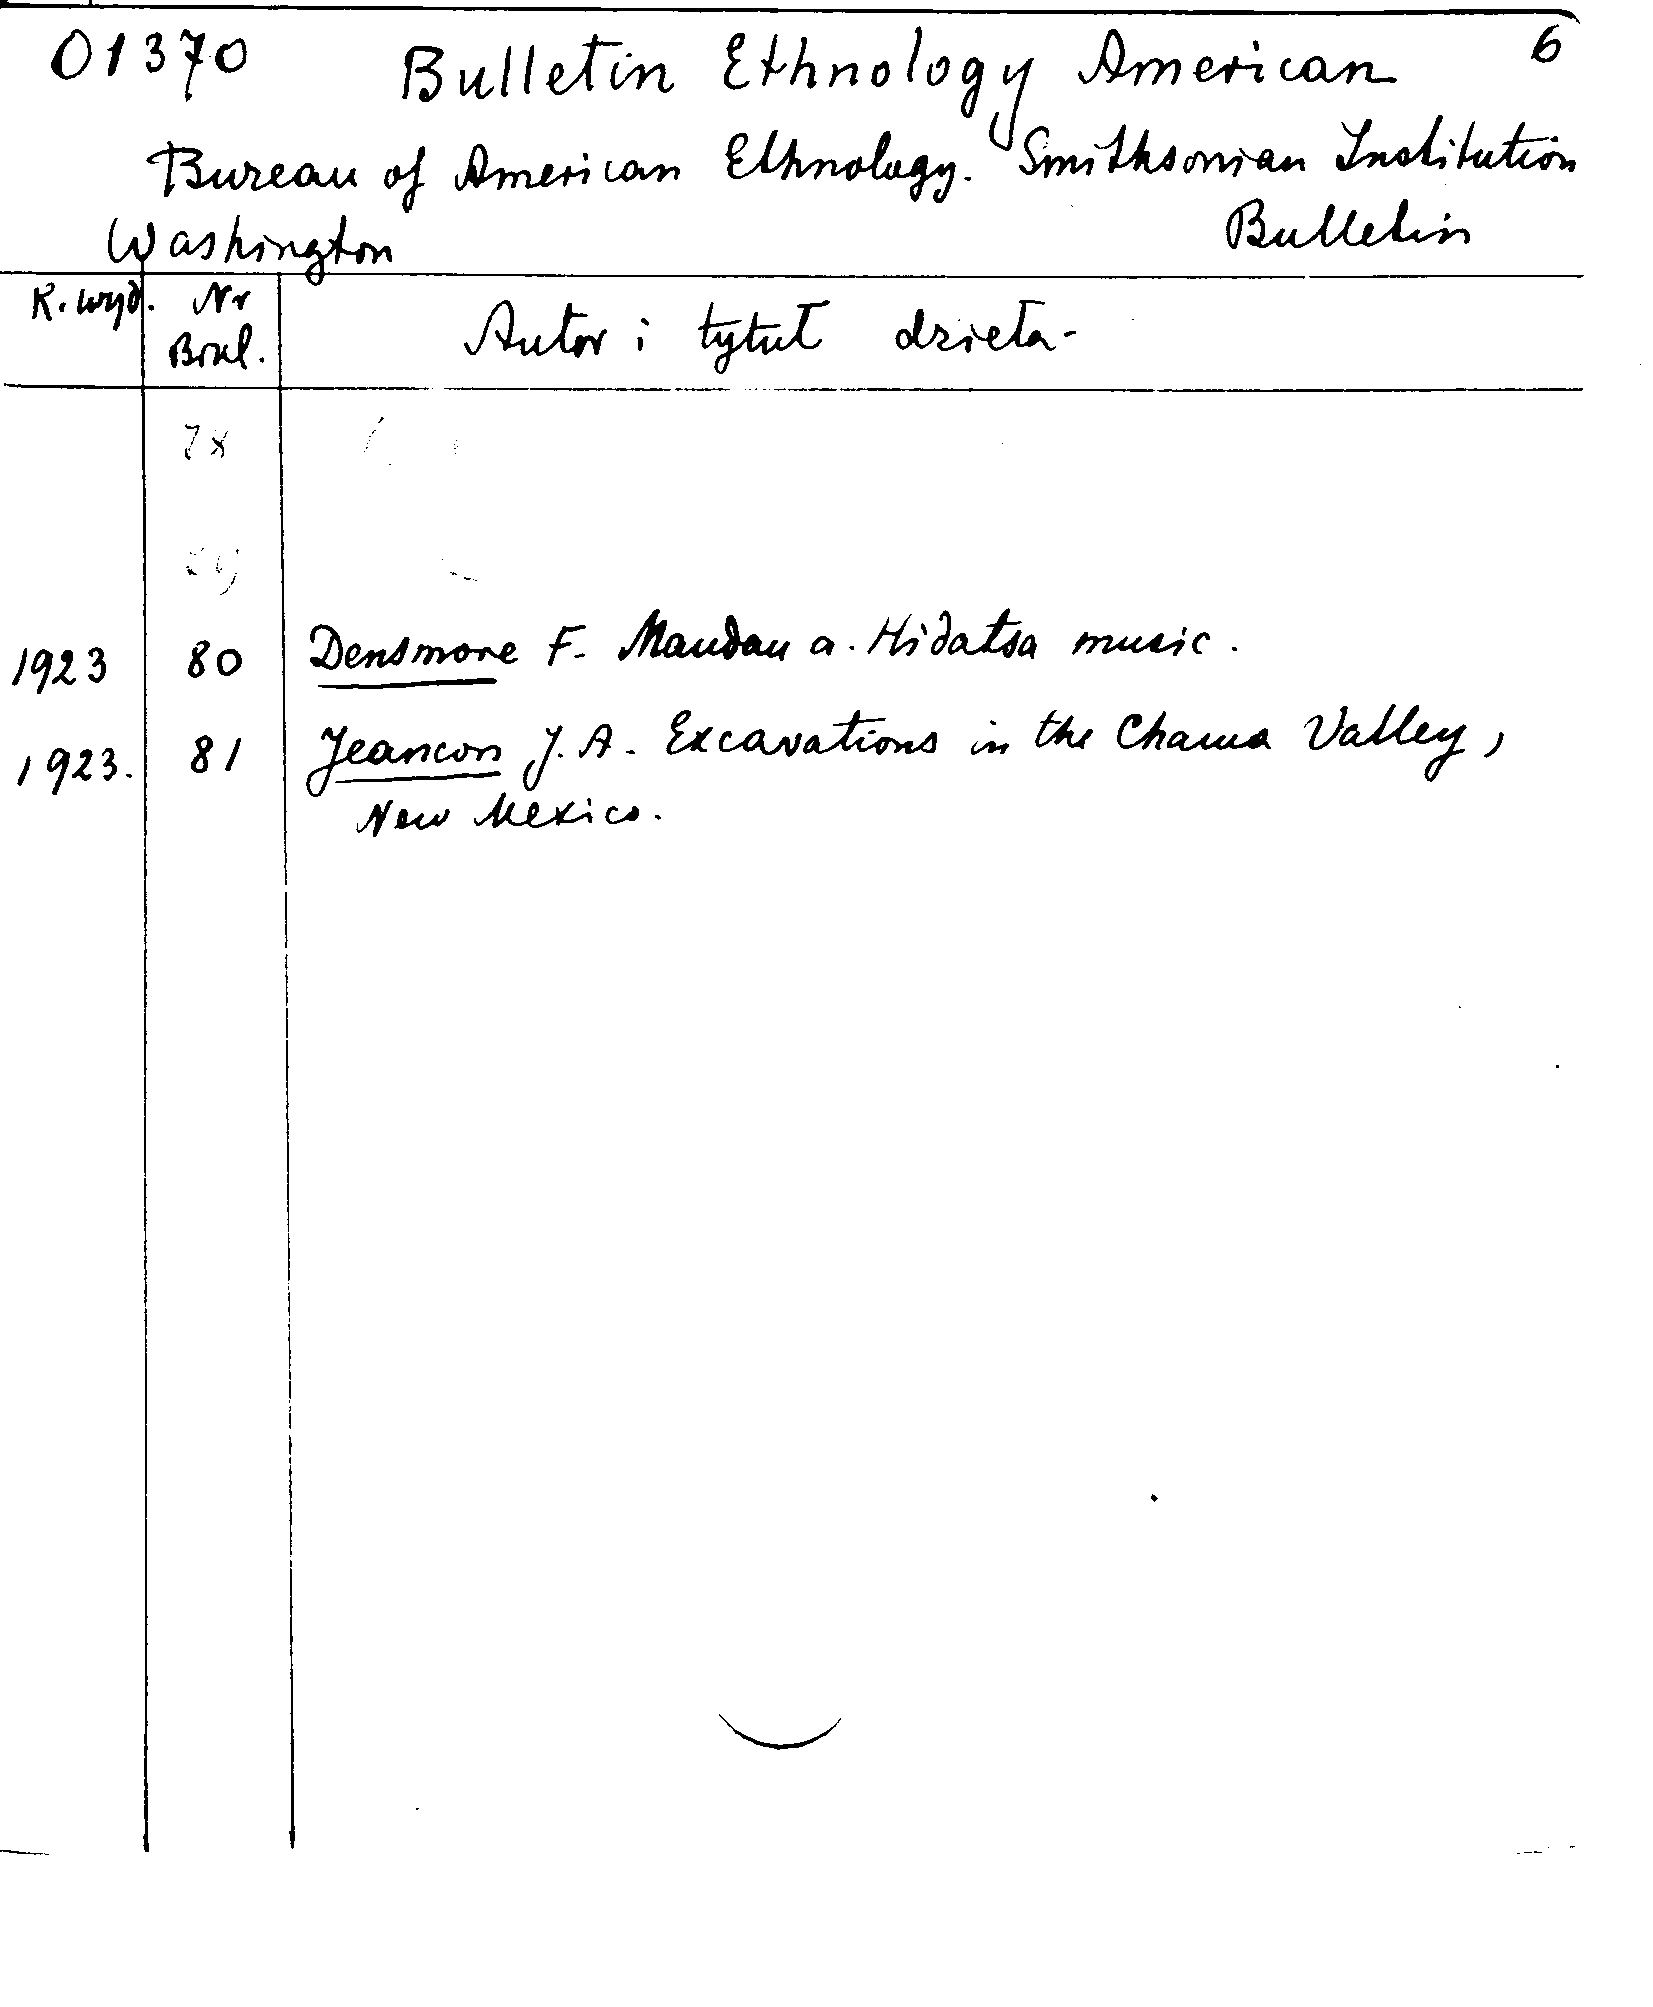 01370 Bulletin Ethnology American 6
Bureau of American Ethnology. Smithsonian Institution
Washington Bulletin
R. wyd. Nr Autor i tytuł dzieła
78
1923 80 Densmore F. Mandan a. Hidatsa music.
1923. 81 Jeancon J. A. Excavations in the Chama Valley,
New Mexico.